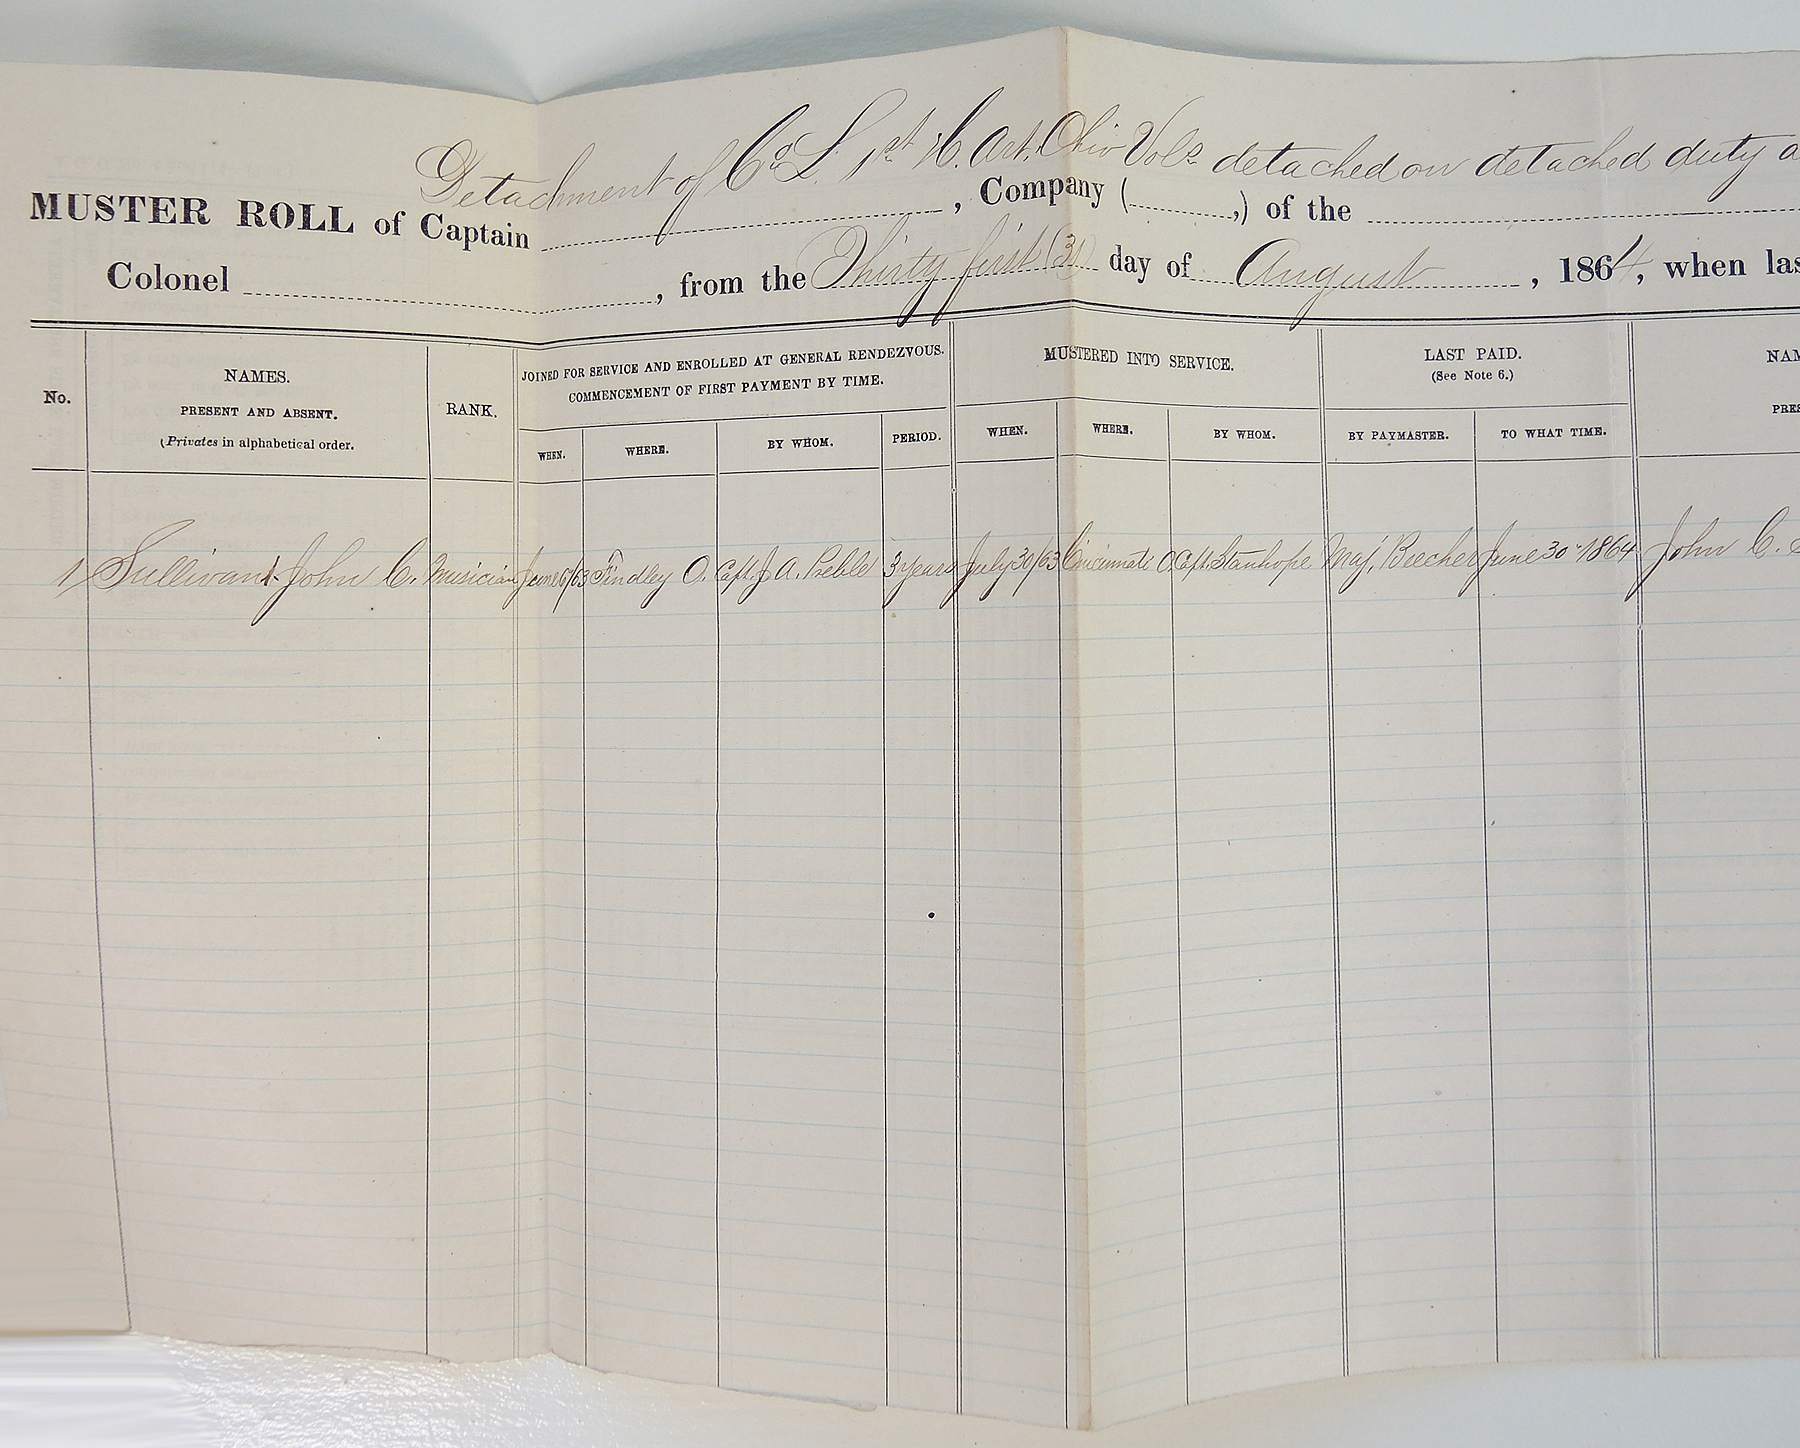 Detachment of Co L. 1st H. Art. Ohio Vols detached on detached duty a
MUSTER ROLL of Captain , Company ( ,) of the
Colonel , from the Thirty first (31) day of August , 1864, when las
No.
NAMES.
PRESENT AND ABSENT.
(Privates in alphabetical order.
RANK.
JOINED FOR SERVICE AND ENROLLED AT GENERAL RENDEZVOUS.
COMMENCEMENT OF FIRST PAYMENT BY TIME.
WHEN. WHERE. BY WHOM. PERIOD.
MUSTERED INTO SERVICE.
WHEN. WHERE. BY WHOM.
LAST PAID.
(See Note 6.)
BY PAYMASTER. TO WHAT TIME.
NAM
PRES
1 Sullivant John C. Musician June 6/63 Findley O. Capt. J A. Preble 3 years July 30/63 Cincinnati O Capt. Stanhope Maj. Beecher June 30 1864 John C. S